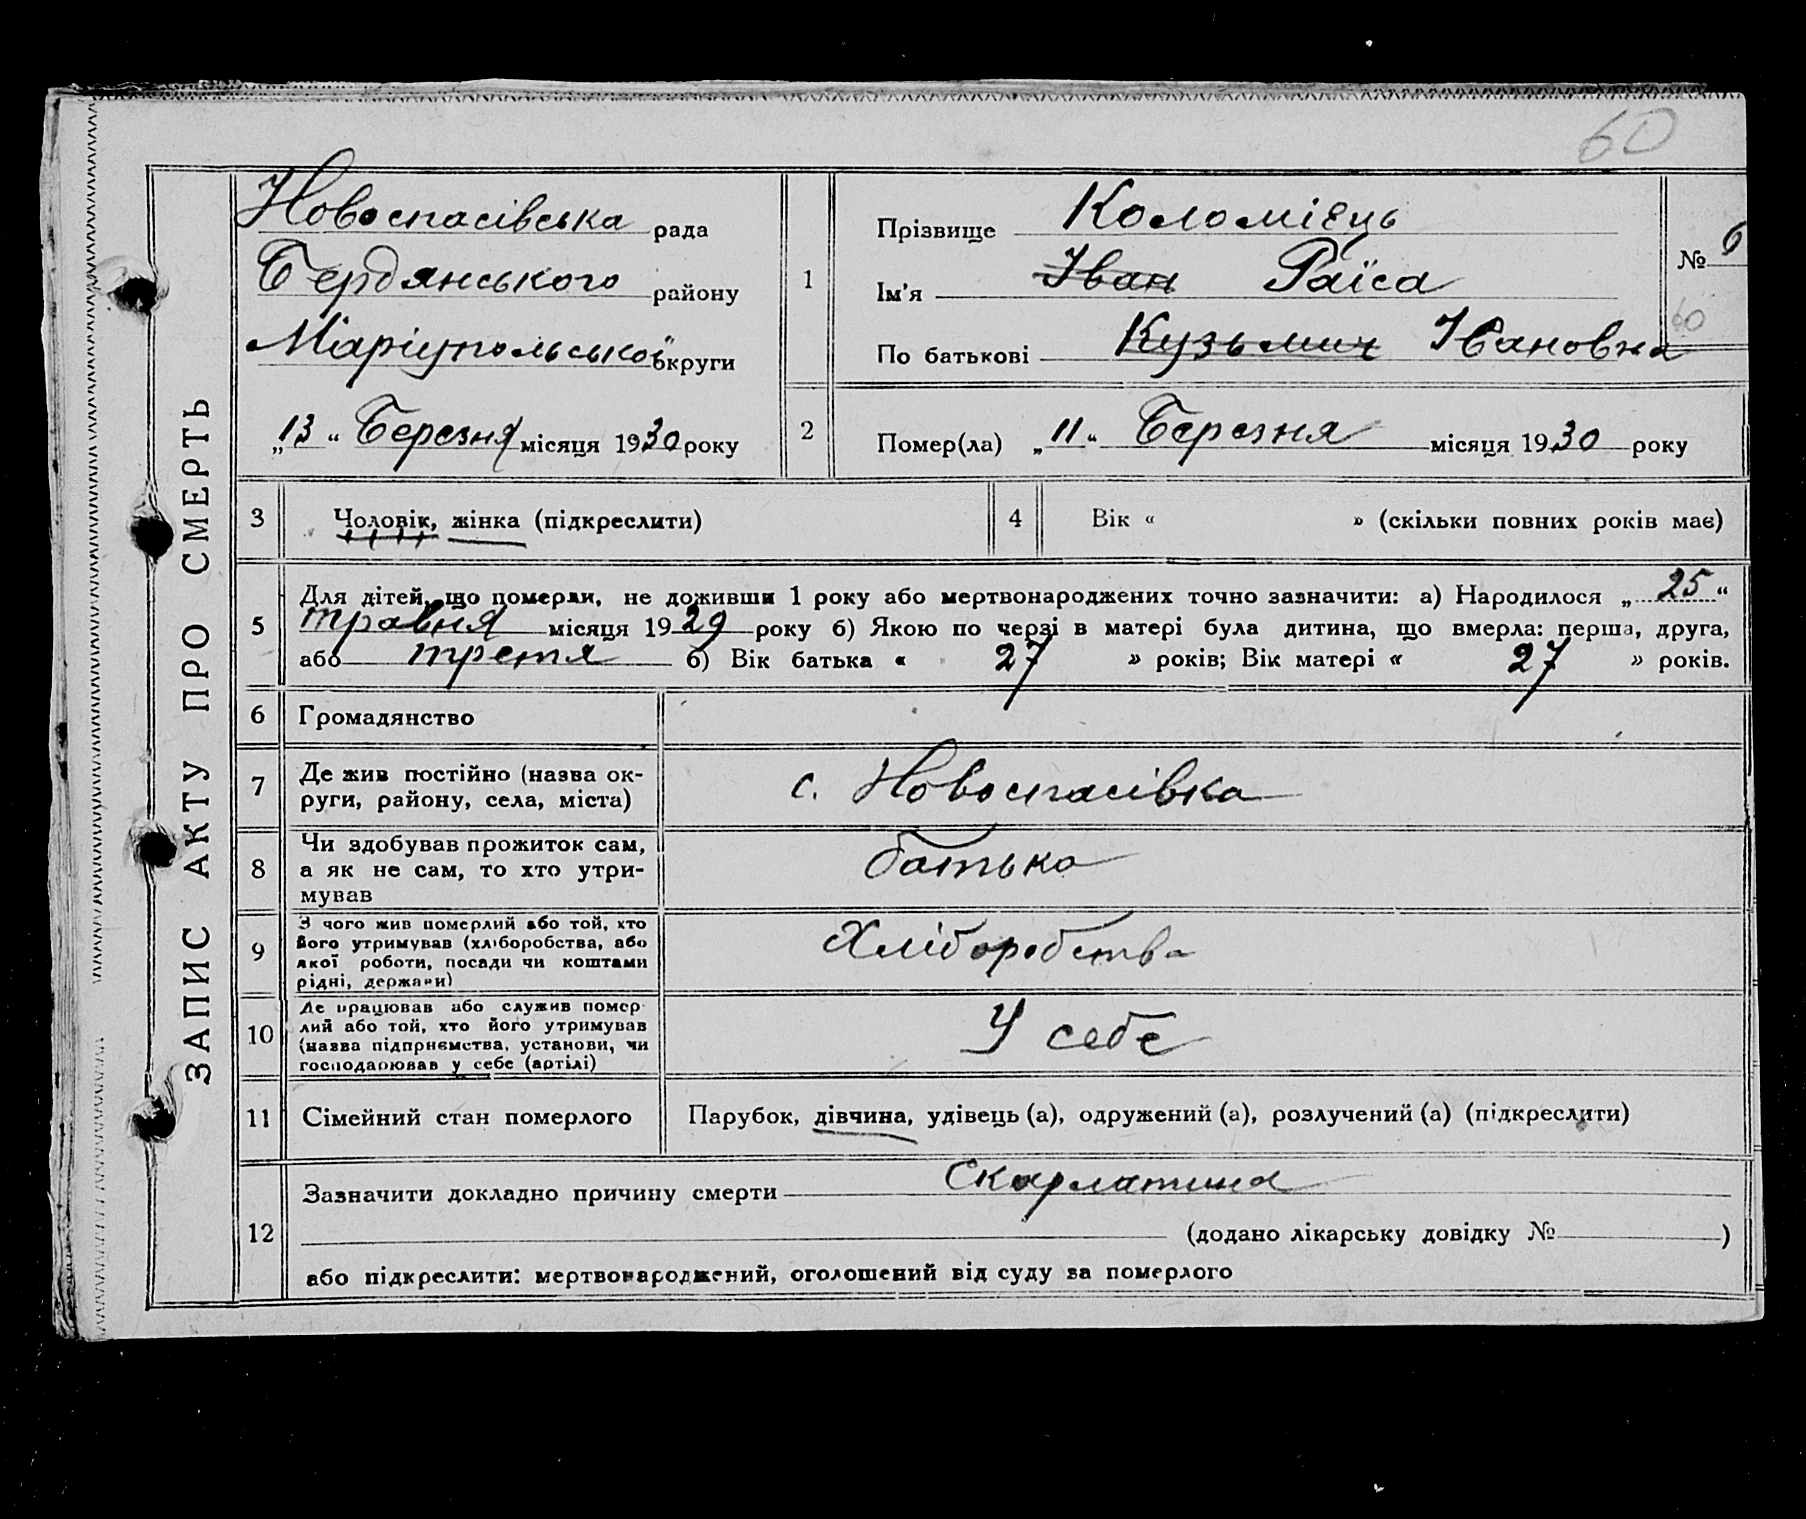 60
ЗАПИС АКТУ ПРО СМЕРТЬ
Новоспасівська рада
Бердянського району
Маріупольської округи
„13“ Березня місяця 1930 року
1
Прізвище Коломієць
Ім'я Іван Раїса
По батькові Кузьмич Івановна
№ 6
60
2
Помер(ла) „11“ Березня місяця 1930 року
3 Чоловік, жінка (підкреслити)
4 Вік « » (скільки повних років має)
5
Для дітей, що померли, не доживши 1 року або мертвонароджених точно зазначити: а) Народилося „25“
травня місяця 1929 року б) Якою по черзі в матері була дитина, що вмерла: перша, друга,
або третя б) Вік батька « 27 » років; Вік матері « 27 » років.
6 Громадянство
7
Де жив постійно (назва ок-
руги, району, села, міста)
с. Новоспасівка
8
Чи здобував прожиток сам,
а як не сам, то хто утри-
мував
батько
9
З чого жив померлий або той, хто
його утримував (хліборобства, або
якої роботи, посади чи коштами
рідні, держави)
Хліборобства
10
Де працював або служив помер-
лий або той, хто його утримував
(назва підприємства, установи, чи
господарював у себе (артілі)
У себе
11 Сімейний стан померлого
Парубок, дівчина, удівець (а), одружений (а), розлучений (а) (підкреслити)
12
Зазначити докладно причину смерти Скарлатина
(додано лікарську довідку № )
або підкреслити: мертвонароджений, оголошений від суду за померлого